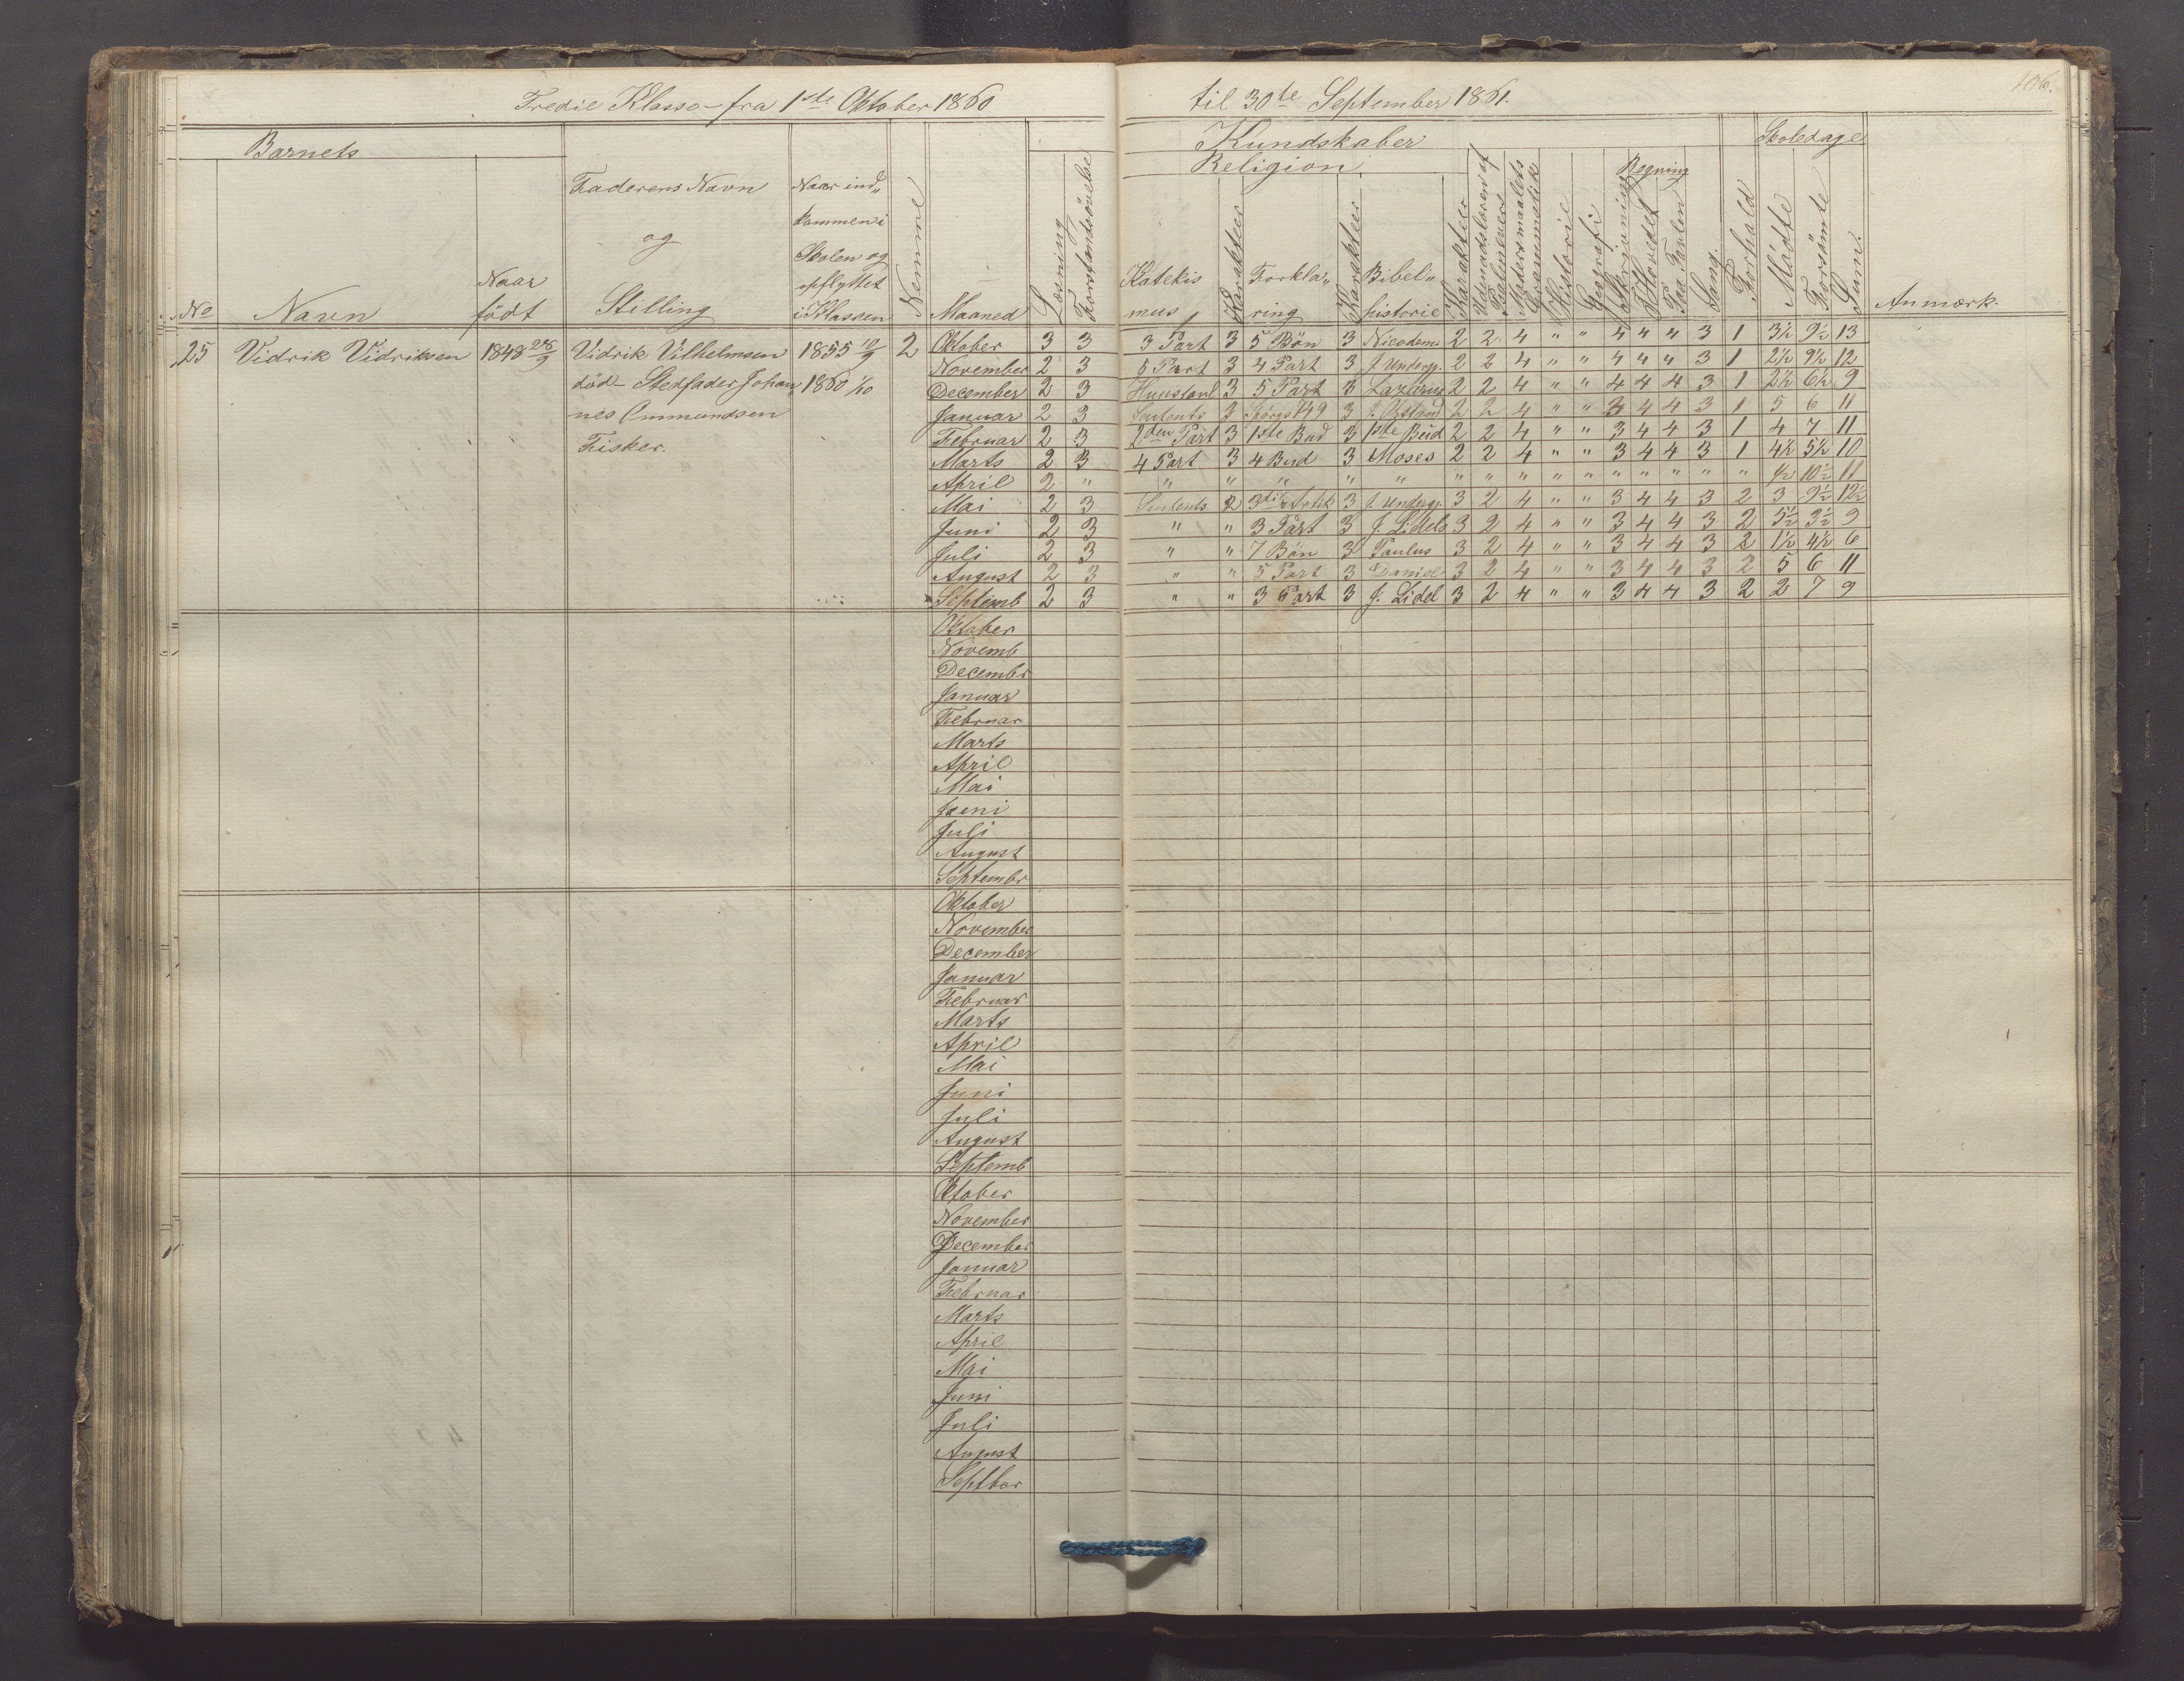 Tredie Klasse - fra 1ste Oktober 1860 til 30te September 1861.
106.
Barnets
Kundskaber
Skoledage
Religion.
Regning
No
Navn
Naar født
Faderens Navn og Stilling
Naar ind„ kommen i Skolen og opflyttet i Klassen
Nemme
Maaned
Læsning
Forstandsøvelse
Katekismus
Karakteer
Forkla„ring
Karakteer
Bibel„historie
Karakteer
Udenadslæren af Psalmevers
Modersmaalets Grammatik
Historie
Geografi
Skrivning
I Hovedet
Paa Tavlen
Sang.
Forhold
Mødte
Forsømte
Sum.
Anmærk.
25 Vidrik Vidriksen 1848 28/9 Vidrik Vilhelmsen 1855 10/9 2 Oktober 3 3 3 Part 3 5 Bøn 3 Nicodem. 2 2 4 " " 4 4 4 3 1 3½ 9½ 13
død - Stedfader Johan„ 1860 1/10
nes Ommundsen
Fisker.
November 2 3 5 Part 3 4 Part 3 J. Underg. 2 2 4 " " 4 4 4 3 1 2½ 9½ 12
December 2 3 Huustavl 3 5 Part 3 Lazarus 2 2 4 " " 4 4 4 3 1 2½ 6½ 9
Januar 2 3 2 149 3 2 2 4 " " 3 4 4 3 1 5 6 11
Februar 2 3 2den Part 3 1ste Bud 3 1ste Bud 2 2 4 " " 3 4 4 3 1 4 7 11
Marts 2 3 4 Part 3 4 Bud 3 Moses 2 2 4 " " 3 4 4 3 1 4½ 5½ 10
April 2 " " " " " " " " " " " " " " " " ½ 10½ 11
Mai 2 3 Sudents 2 3die Artik 3 J. Underg. 3 2 4 " " 3 4 4 3 2 3 9½ 12½
Juni 2 3 " " 3 Part 3 J. Lidels 3 2 4 " " 3 4 4 3 2 5½ 3½ 9
Juli 2 3 " " 7 Bøn 3 Paulus 3 2 4 " " 3 4 4 3 2 1½ 4½ 6
August 2 3 " " 5 Part 3 Daniel 3 2 4 " " 3 4 4 3 2 5 6 11
Septemb 2 3 " " 3 Part 3 J. Lidel 3 2 4 " " 3 4 4 3 2 2 7 9
Oktober
Novemb
Decembr
Januar
Februar
Marts
April
Mai
Juni
Juli
August
Septembr
Oktober
November
December
Januar
Februar
Marts
April
Mai
Juni
Juli
August
Septemb
Oktober
November
December
Januar
Februar
Marts
April
Mai
Juni
Juli
August
Septbor